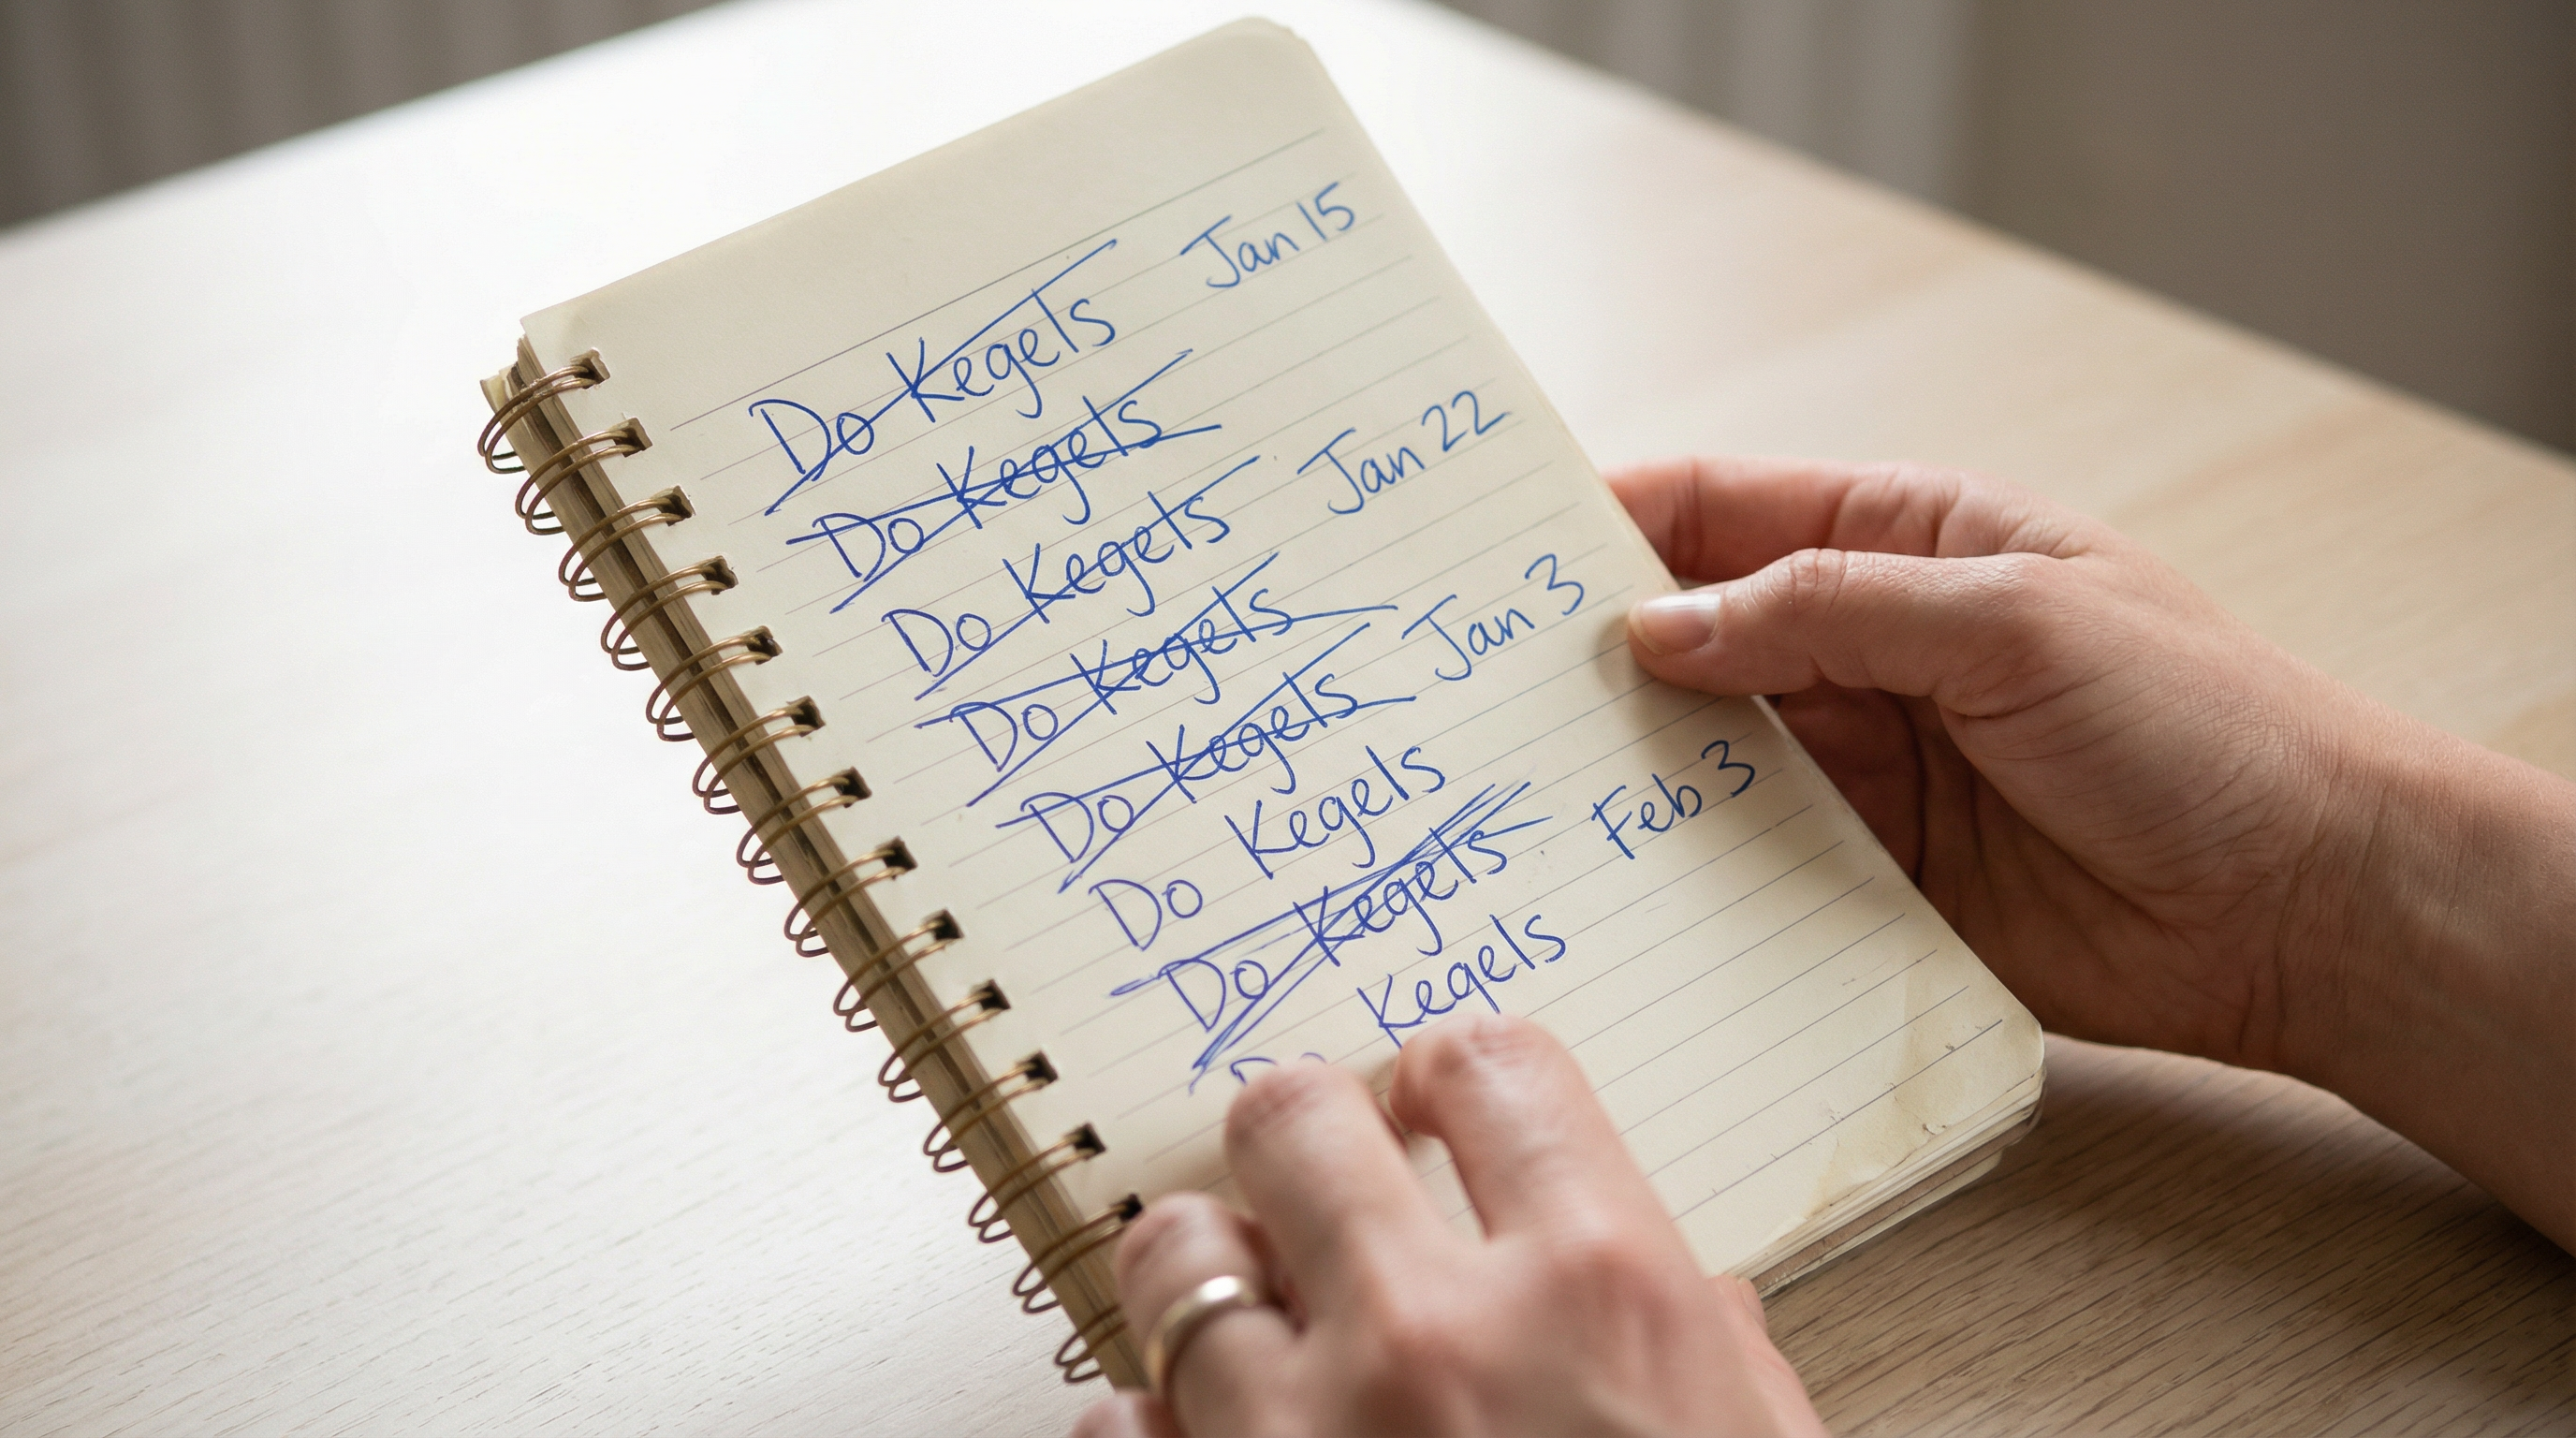 Do Kegels Jan 15
Do Kegels
Do Kegels Jan 22
Do Kegels
Do Kegels Jan 3
Do Kegels
Do Kegels Feb 3
Kegels